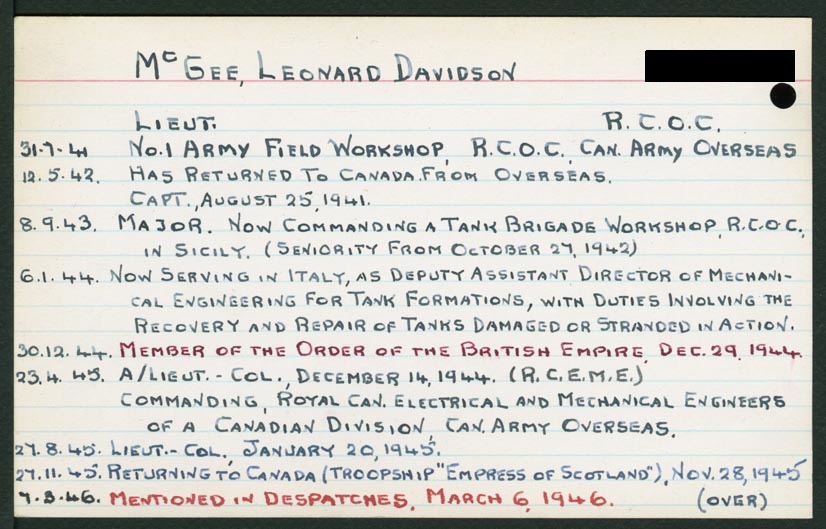 McGEE, LEONARD DAVIDSON
LIEUT. R.C.O.C.
31-7-41 NO.1 ARMY FIELD WORKSHOP, R.C.O.C., CAN. ARMY OVERSEAS
12.5.42. HAS RETURNED TO CANADA FROM OVERSEAS.
CAPT., AUGUST 25, 1941.
8.9.43. MAJOR. NOW COMMANDING A TANK BRIGADE WORKSHOP, R.C.O.C.,
IN SICILY. (SENIORITY FROM OCTOBER 27, 1942)
6.1.44. NOW SERVING IN ITALY, AS DEPUTY ASSISTANT DIRECTOR OF MECHANI-
CAL ENGINEERING FOR TANK FORMATIONS, WITH DUTIES INVOLVING THE
RECOVERY AND REPAIR OF TANKS DAMAGED OR STRANDED IN ACTION.
30.12.44. MEMBER OF THE ORDER OF THE BRITISH EMPIRE, DEC. 29, 1944.
23.4.45. A/LIEUT.-COL., DECEMBER 14, 1944. (R.C.E.M.E.)
COMMANDING, ROYAL CAN. ELECTRICAL AND MECHANICAL ENGINEERS
OF A CANADIAN DIVISION, CAN. ARMY OVERSEAS.
27.8.45. LIEUT.-COL., JANUARY 20, 1945.
27.11.45. RETURNING TO CANADA (TROOPSHIP "EMPRESS OF SCOTLAND"), NOV. 28, 1945
7.3.46. MENTIONED IN DESPATCHES, MARCH 6, 1946. (OVER)